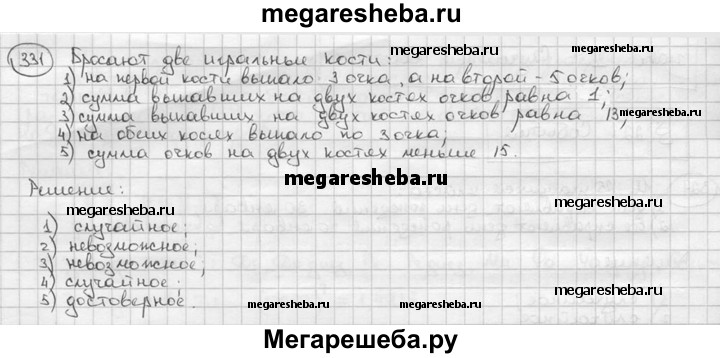 megaresheba.ru
331 Бросают две игральные кости:
megaresheba.ru
1) на первой кости выпало 3 очка, а на второй - 5 очков;
2) сумма выпавших на двух костях очков равна 1;
3) сумма выпавших на двух костях очков равна 13;
megaresheba.ru
4) на обеих костях выпало по 3 очка;
5) сумма очков на двух костях меньше 15.
megaresheba.ru
Решение:
megaresheba.ru
1) случайное;
2) невозможное;
3) невозможное;
4) случайное;
5) достоверное.
megaresheba.ru megaresheba.ru megaresheba.ru
Мегарешеба.ру